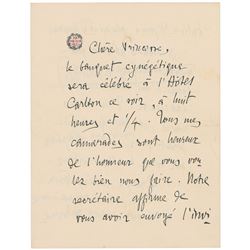 Chère Princesse,
le banquet cynégétique
sera célébré à l'Hôtel
Carlton ce soir, à huit
heures et 1/4. Tous mes
camarades sont heureux
de l'honneur que vous vou
lez bien nous faire. Notre
secrétaire affirme de
vous avoir envoyé l'invi